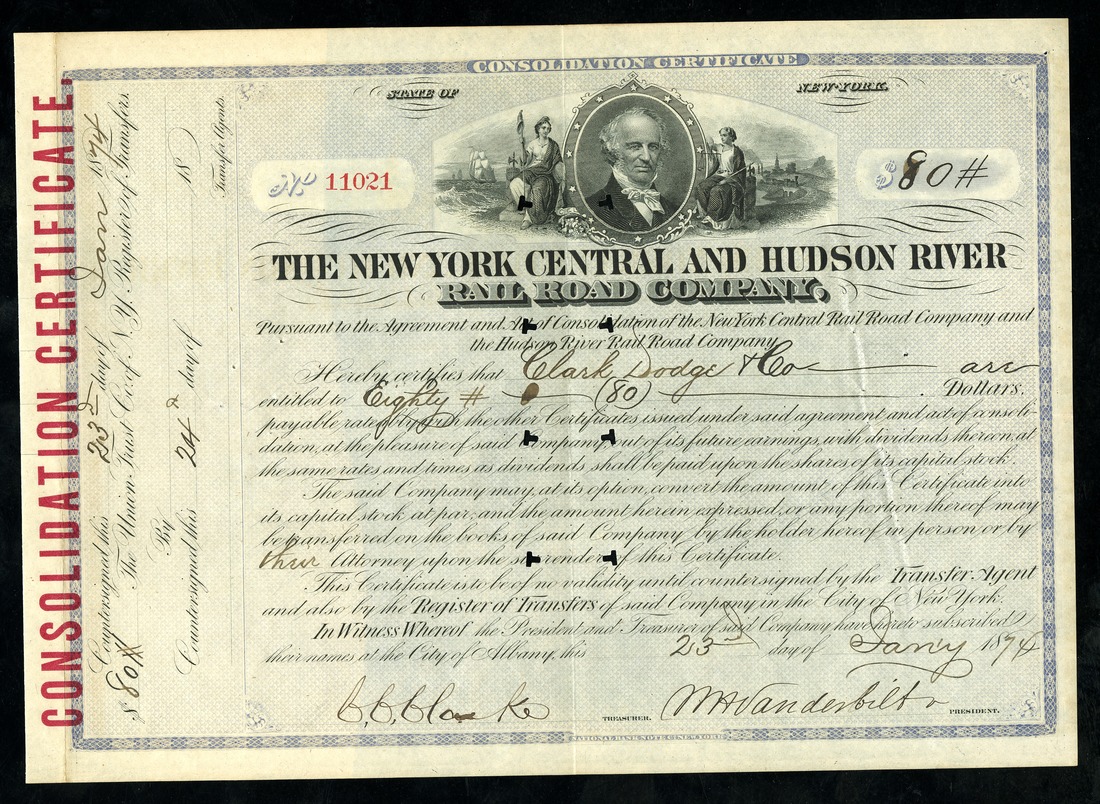 CONSOLIDATION CERTIFICATE
STATE OF NEW-YORK.
No 11021
$80#
THE NEW YORK CENTRAL AND HUDSON RIVER
RAIL ROAD COMPANY,
Pursuant to the Agreement and Act of Consolidation of the New York Central Rail Road Company and
the Hudson River Rail Road Company
Hereby certifies that Clark, Dodge & Co are
entitled to Eighty # (80) Dollars.
payable ratably with the other Certificates issued under said agreement and act of consoli-
dation, at the pleasure of said Company, out of its future earnings, with dividends thereon, at
the same rates and times as dividends shall be paid upon the shares of its capital stock.
The said Company may, at its option, convert the amount of this Certificate into
its capital stock at par, and the amount herein expressed, or any portion thereof may
be transferred on the books of said Company by the holder hereof in person or by
their Attorney upon the surrender of this Certificate.
This Certificate is to be of no validity until countersigned by the Transfer Agent
and also by the Register of Transfers of said Company in the City of New York.
In Witness Whereof the President and Treasurer of said Company have hereto subscribed
their names at the City of Albany, this 23rd day of Jany 1874
C.C. Clarke TREASURER. W H Vanderbilt PRESIDENT.
NATIONAL BANK NOTE CO. NEW YORK
CONSOLIDATION CERTIFICATE.
Countersigned this 23d day of Jan 1874
$80#
The Union Trust Co. of N.Y. Register of Transfers.
By
Countersigned this 24 day of 18
Transfer Agents.